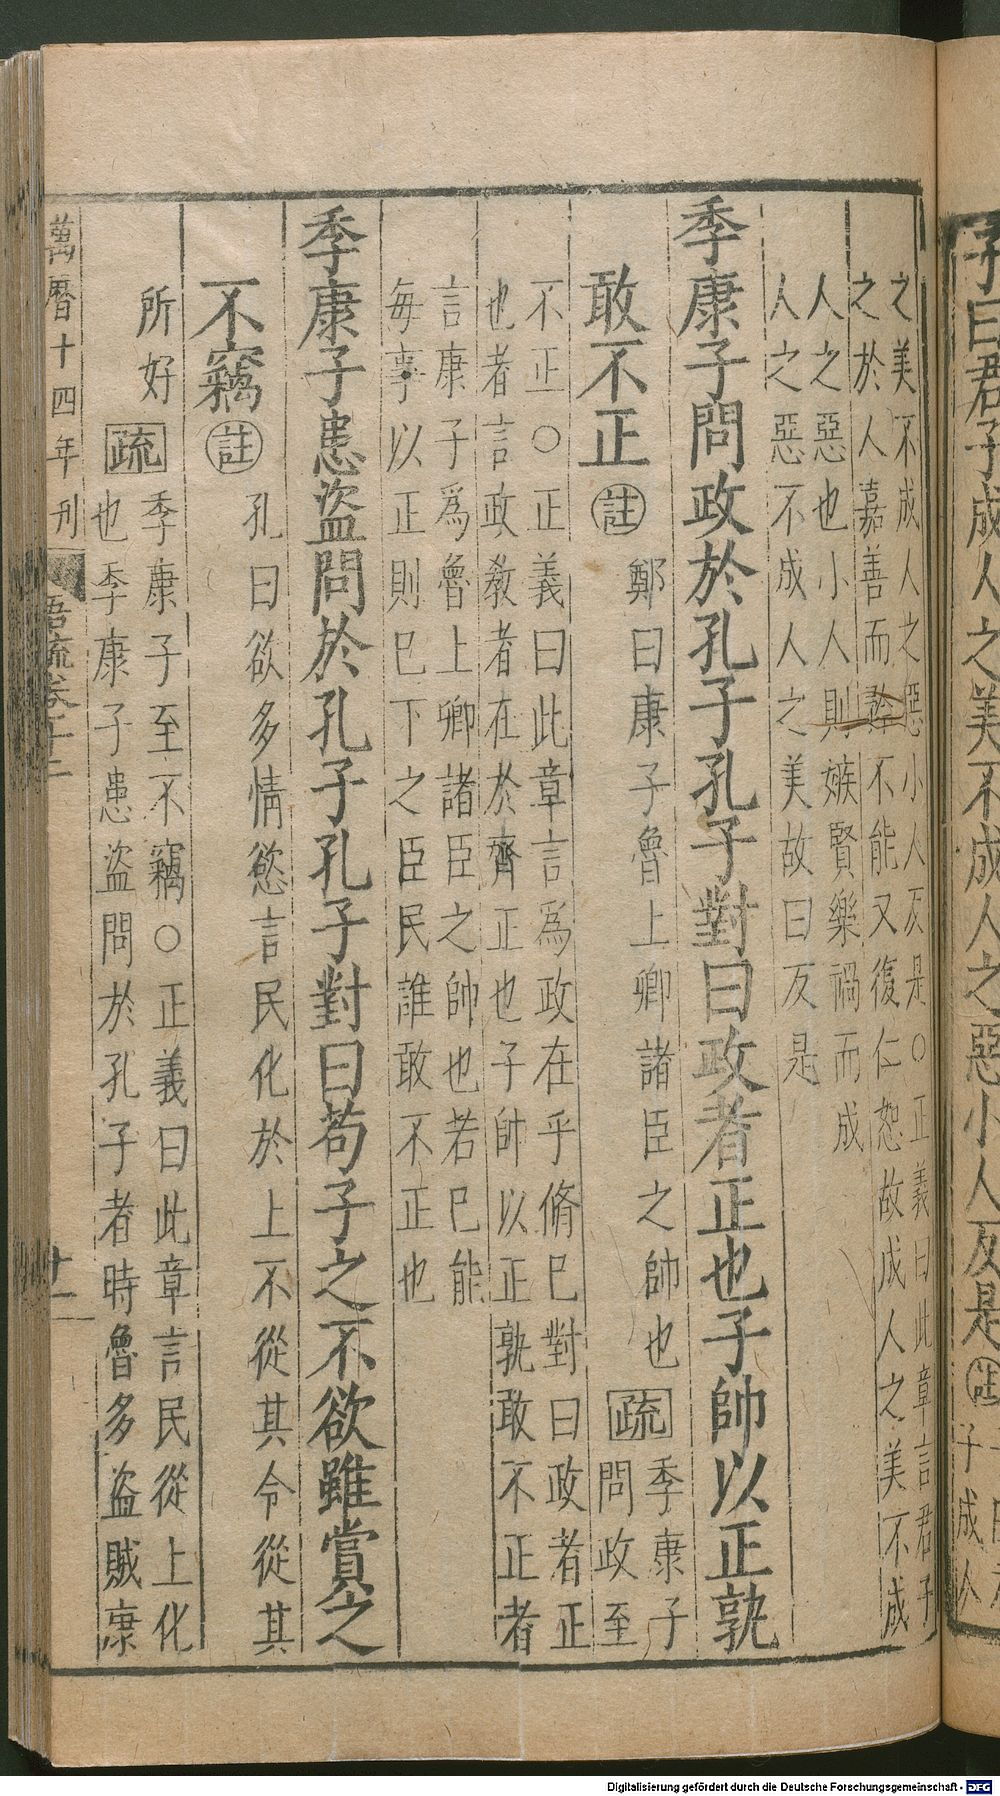 子曰君子成人之美不成人之惡小人反是註
子成人
之美不成人之惡小人反是○正義曰此章言君子
之於人嘉善而矜不能又復仁恕故成人之美不成
人之惡也小人則嫉賢樂禍而成
人之惡不成人之美故曰反是
季康子問政於孔子孔子對曰政者正也子帥以正孰
敢不正註
鄭曰康子魯上卿諸臣之帥也疏
季康子
問政至
不正○正義曰此章言爲政在乎脩巳對曰政者正
也者言政教者在於齊正也子帥以正孰敢不正者
言康子爲魯上卿諸臣之帥也若巳能
每事以正則巳下之臣民誰敢不正也
季康子患盜問於孔子孔子對曰苟子之不欲雖賞之
不竊註
孔曰欲多情慾言民化於上不從其令從其
所好疏
季康子至不竊○正義曰此章言民從上化
也季康子患盜問於孔子者時魯多盜賊康
萬曆十四年刋 語疏卷十二 十一
Digitalisierung gefördert durch die Deutsche Forschungsgemeinschaft - DFG